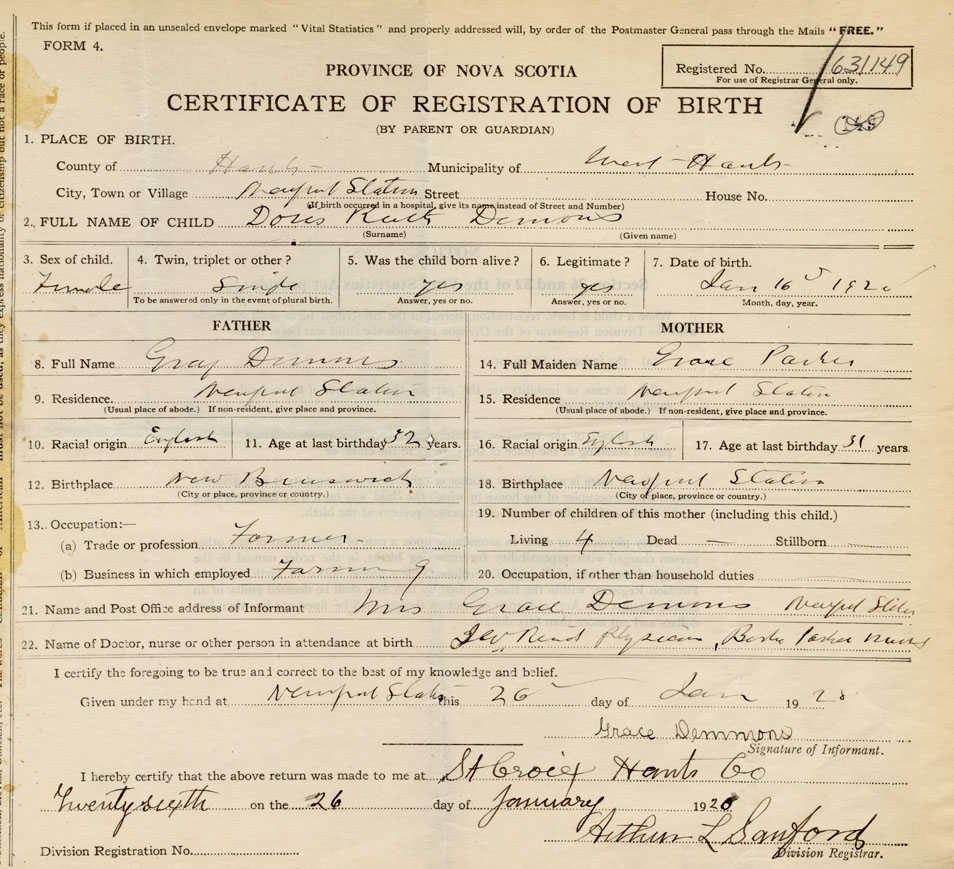 This form if placed in an unsealed envelope marked "Vital Statistics" and properly addressed will, by order of the Postmaster General pass through the Mails "FREE."
FORM 4.
Registered No. 631149
For use of Registrar General only.
PROVINCE OF NOVA SCOTIA
CERTIFICATE OF REGISTRATION OF BIRTH
(BY PARENT OR GUARDIAN)
1. PLACE OF BIRTH.
County of Hants Municipality of West Hants
City, Town or Village Newport Station Street House No.
(If birth occurred in a hospital, give its name instead of Street and Number)
2. FULL NAME OF CHILD Doris Ruth Demons
(Surname) (Given name)
3. Sex of child. 4. Twin, triplet or other? 5. Was the child born alive? 6. Legitimate? 7. Date of birth.
Female Single yes yes Jan 16
To be answered only in the event of plural birth. Answer, yes or no. Answer, yes or no. Month, day, year.
FATHER MOTHER
8. Full Name Demons 14. Full Maiden Name Grace Parker
9. Residence. Newport Station 15. Residence Newport Station
(Usual place of abode.) If non-resident, give place and province. (Usual place of abode.) If non-resident, give place and province.
10. Racial origin English 11. Age at last birthday 52 years. 16. Racial origin English 17. Age at last birthday 31 years.
12. Birthplace New Brunswick 18. Birthplace Newport Station
(City or place, province or country.) (City or place, province or country.)
13. Occupation:— 19. Number of children of this mother (including this child.)
(a) Trade or profession Farmer Living 4 Dead — Stillborn
(b) Business in which employed Farming 20. Occupation, if other than household duties
21. Name and Post Office address of Informant Mrs Grace Demons Newport Station
22. Name of Doctor, nurse or other person in attendance at birth Physician, Parker nurse
I certify the foregoing to be true and correct to the best of my knowledge and belief.
Given under my hand at Newport Station this 26 day of Jan 19
Grace Demmons
Signature of Informant.
I hereby certify that the above return was made to me at St Croix Hants Co
Twenty sixth on the 26 day of January 19
Arthur L Sanford
Division Registration No. Division Registrar.